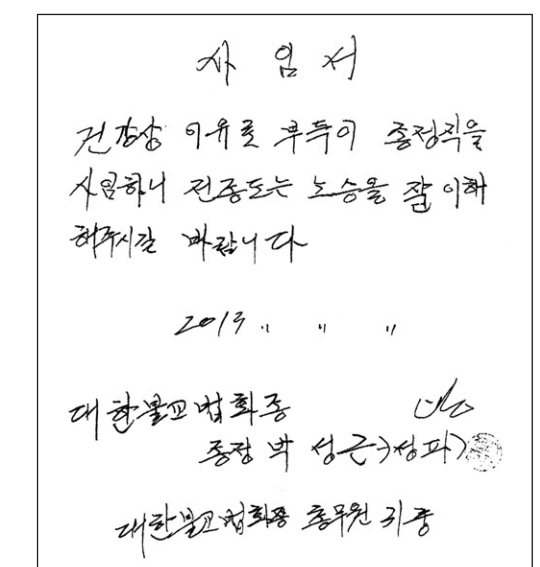 사 임 서
건강상 이유로 부득이 종정직을
사임하니 전종도는 노승을 잘 이해
해주시길 바랍니다
2013 〃 〃 〃
대한불교법화종
종정 박 성근(성파)
대한불교법화종 총무원 귀중